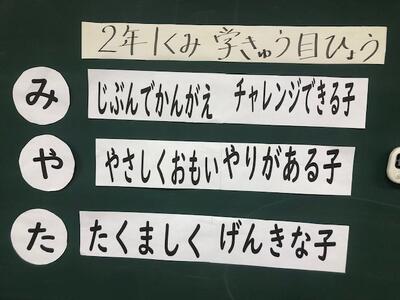 2年1くみ 学きゅう目ひょう
み じぶんでかんがえ チャレンジできる子
や やさしくおもいやりがある子
た たくましく げんきな子